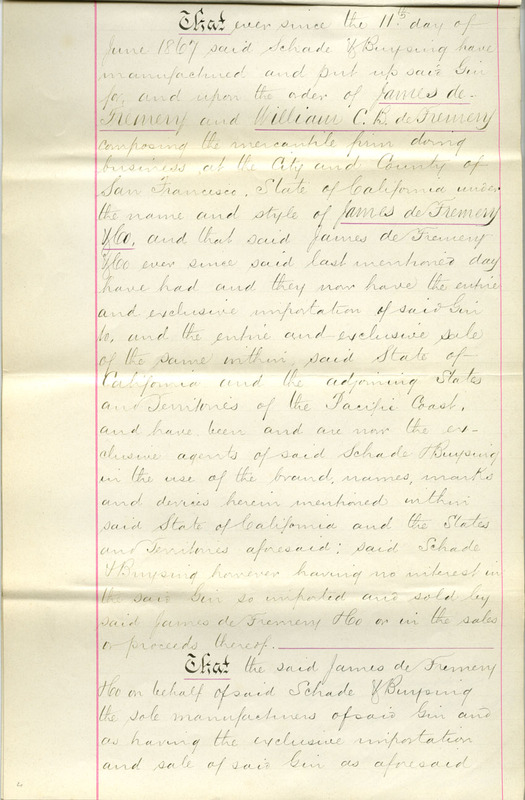 That ever since the 11th day of
June 1867 said Schade & Buysing have
manufactured and put up said Gin
for, and upon the order of James de
Fremery and William C. B. de Fremery
composing the mercantile firm doing
business at the City and County of
San Francisco, State of California under
the name and style of James de Fremery
& Co, and that said James de Fremery
& Co ever since said last mentioned day
have had and they now have the entire
and exclusive importation of said Gin
to, and the entire and exclusive sale
of the same within, said State of
California and the adjoining States
and Territories of the Pacific Coast,
and have been and are now the ex-
clusive agents of said Schade & Buysing
in the use of the brand, names, marks
and devices herein mentioned within
said State of California and the States
and Territories aforesaid; said Schade
& Buysing however having no interest in
the said Gin so imported and sold by
said James de Fremery & Co or in the sales
or proceeds thereof.
That the said James de Fremery
& Co on behalf of said Schade & Buysing
the sole manufacturers of said Gin and
as having the exclusive importation
and sale of said Gin as aforesaid